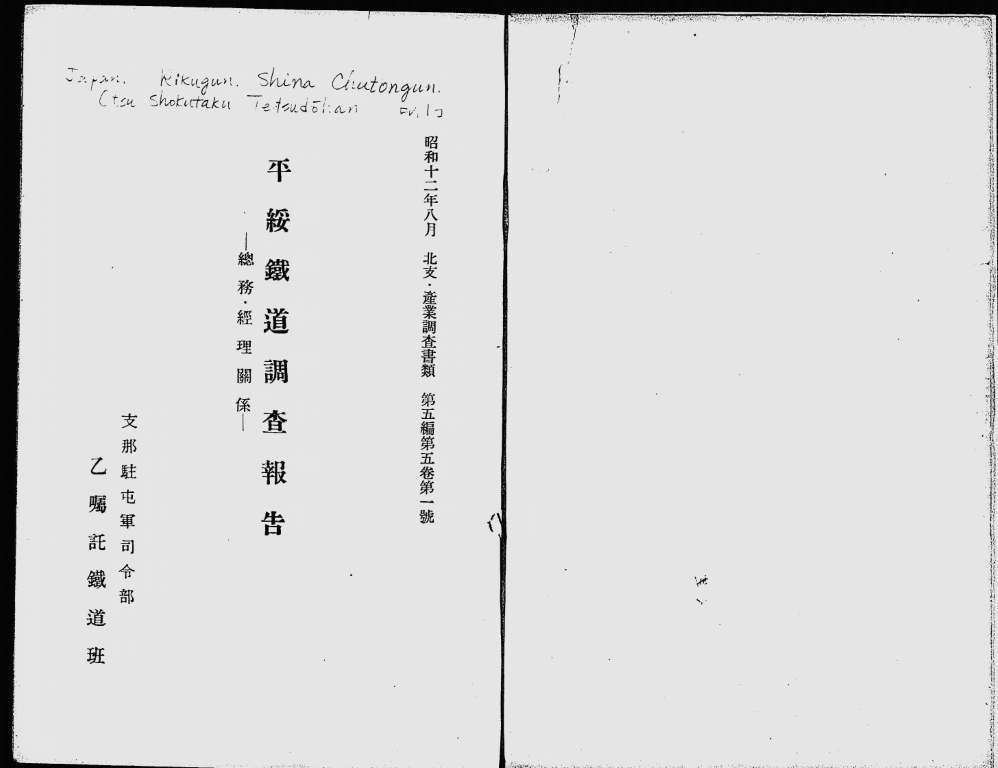 Japan. Rikugun. Shina Chutongun.
Otsu Shokutaku Tetsudōhan
昭和十二年八月 北支・產業調查書類 第五編第五卷第一號
平綏鐵道調查報告
―總務・經理關係―
支那駐屯軍司令部
乙囑託鐵道班